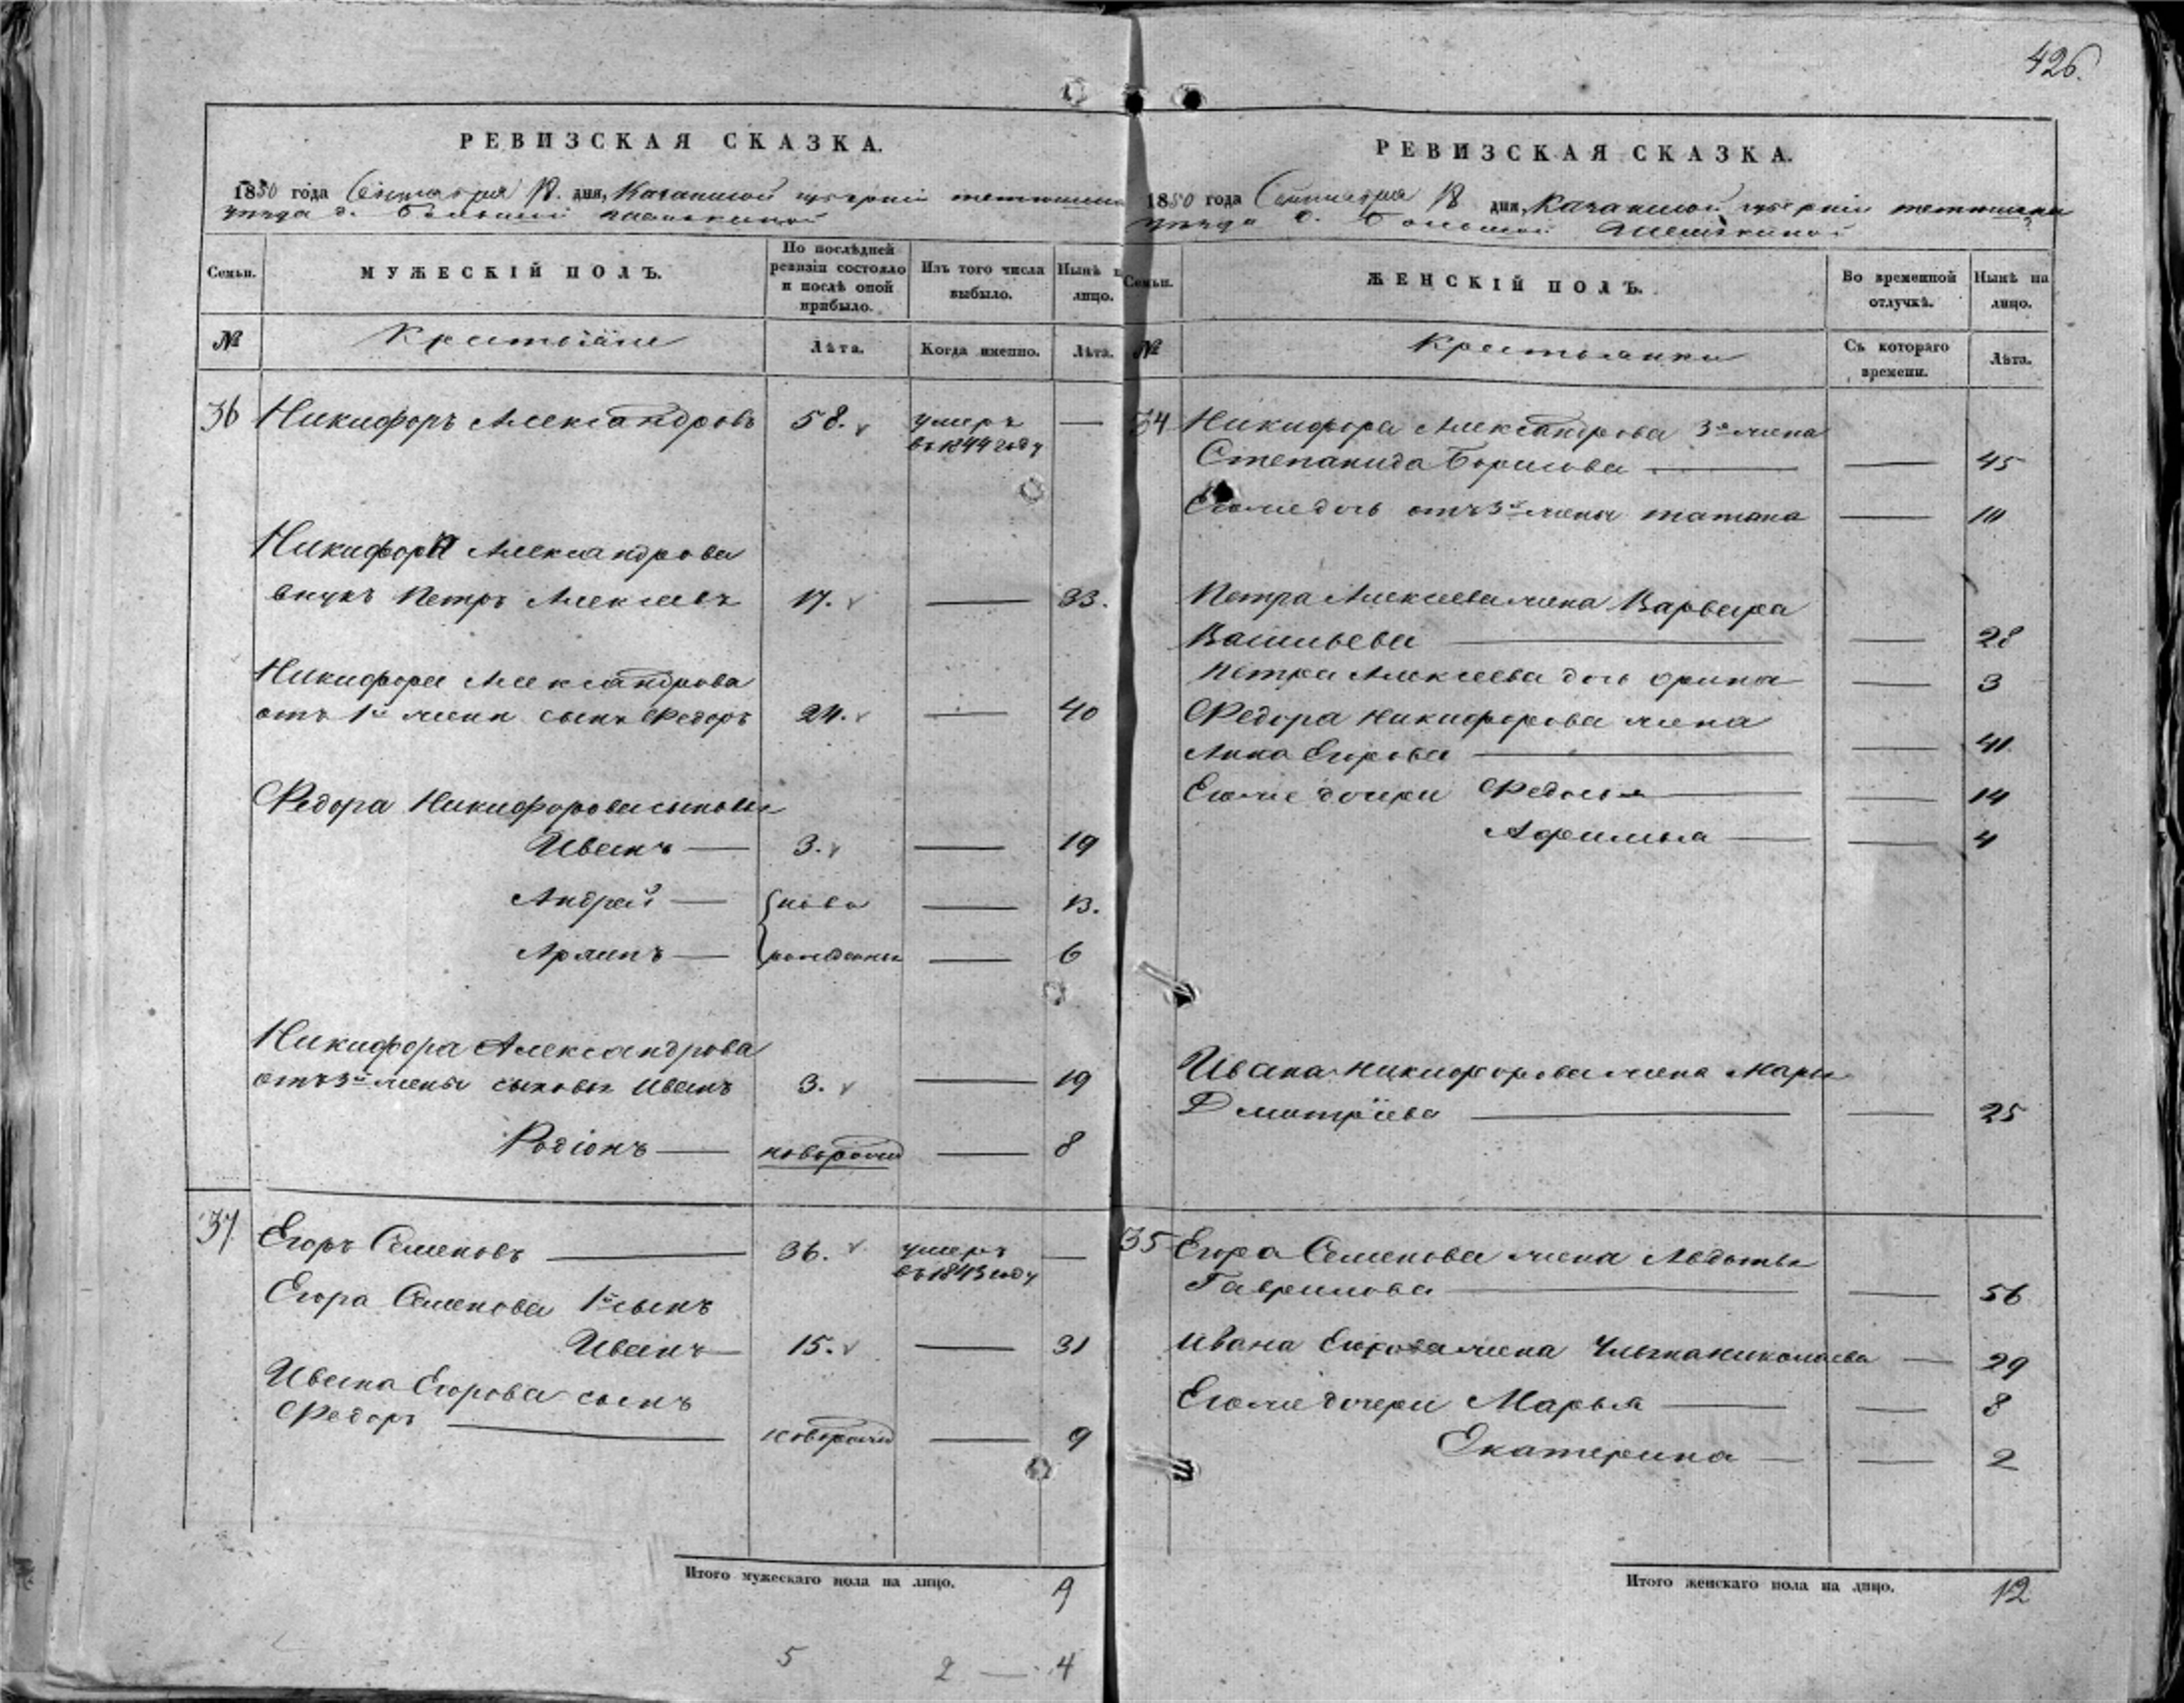 426.
РЕВИЗСКАЯ СКАЗКА.
1850 года Сентября дня, Казанской губерніи
уѣзда д. Большой
Семьи.
МУЖЕСКІЙ ПОЛЪ.
По послѣдней ревизіи состояло и послѣ оной прибыло.
Изъ того числа выбыло.
Нынѣ на лицо.
№
Крестьяне
Лѣта.
Когда именно.
Лѣта.
36 Никифоръ Александровъ 58. умеръ —
въ 1844 году
Никифора Александрова
внукъ Петръ Алексеевъ 17. — 33.
Никифора Александрова
отъ 1й жены сынъ Федоръ 24. — 40
Федора Никифорова сыновья
Иванъ — 3. — 19
Андрей — ново — 13.
— рожденны — 6
Никифора Александрова
отъ 3й жены сыновья Иванъ 3. — 19
Родіонъ — новорожд — 8
37 Егоръ Семеновъ — 36. умеръ —
въ 1843 году
Егора Семенова 1й сынъ
Иванъ — 15. — 31
Ивана Егорова сынъ
Федоръ — новорожд — 9
Итого мужескаго пола на лицо. 9
5 2 — 4
РЕВИЗСКАЯ СКАЗКА.
1850 года Сентября дня, Казанской губерніи
уѣзда д. Большой
Семьи.
ЖЕНСКІЙ ПОЛЪ.
Во временной отлучкѣ.
Нынѣ на лицо.
№
Крестьянки
Съ котораго времени.
Лѣта.
34 Никифора Александрова 3я жена
Степанида Борисова — — 45
Егоже дочь отъ 3й жены татьяна — 10
Петра Алексеева жена Варвара
Васильева — — 28
Петра Алексеева дочь орина — 3
Федора Никифорова жена
Анна Егорова — — 41
Егоже дочери Федосья — — 14
Афимья — — 4
Ивана Никифорова жена Марья
Дмитріева — — 25
35 Егора Семенова жена Авдотья
Гаврилова — — 56
Ивана Егорова жена Ульяна николаева — 29
Егоже дочери Марья — — 8
Екатерина — — 2
Итого женскаго пола на лицо. 12